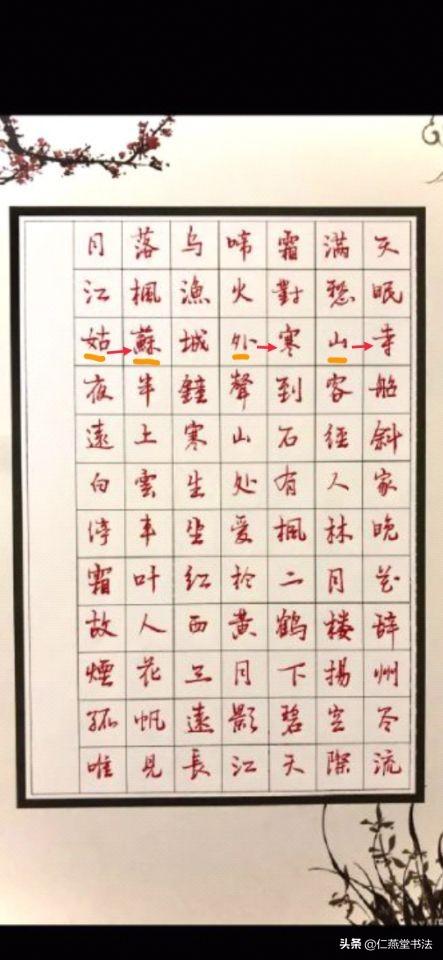 月落乌啼霜满天
江楓漁火對愁眠
姑蘇城外寒山寺
夜半鐘聲到客船
遠上寒山石經斜
白雲生处有人家
停车坐爱楓林晚
霜叶红於二月花
故人西黄鹤楼辞
煙花三月下揚州
孤帆遠影碧空尽
唯見長江天際流
头条 @仁燕堂书法